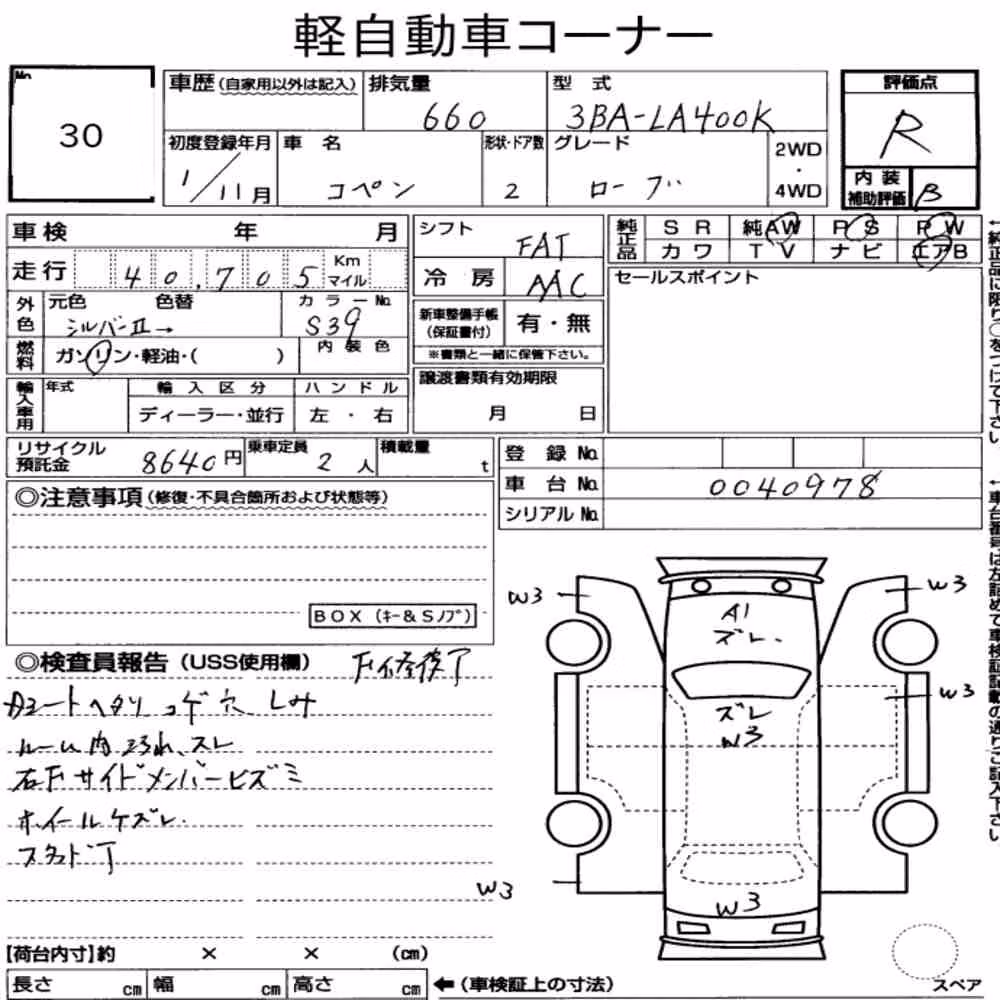 軽自動車コーナー
No.
30
車歴(自家用以外は記入)
排気量
660
型 式
3BA-LA400K
評価点
R
初度登録年月
1/11月
車 名
コペン
形状・ドア数
2
グレード
ローブ
2WD
・
4WD
内 装
補助評価
B
車検 年 月
シフト
FAT
純正品
S R
純AW
P S
P W
カ ワ
T V
ナ ビ
エアB
走行
40,705
Km
マイル
冷 房
AAC
セールスポイント
外色
元色 色替
シルバーⅡ→
カ ラ ー No.
S39
新車整備手帳
(保証書付)
有・無
※書類と一緒に保管下さい。
燃料
ガソリン・軽油・( )
内 装 色
譲渡書類有効期限
月 日
輸入車用
年式
輸 入 区 分
ハ ン ド ル
ディーラー・並行
左 ・ 右
リサイクル
預託金
8640円
乗車定員
2人
積載量
t
登 録 No.
車 台 No.
0040978
シリアル No.
◎注意事項(修復・不具合箇所および状態等)
BOX(キー&Sノブ)
◎検査員報告(USS使用欄)
F修復了
シートヘタリ コゲ穴 シミ
ルーム内 スレ
右Fサイドメンバーヒズミ
ホイールケズレ
W3
W3
A1
ズレ
W3
ズレ
W3
W3
W3
【荷台内寸】約 × × (cm)
長さ cm
幅 cm
高さ cm
←(車検証上の寸法)
スペア
←純正品に限り○をつけて下さい。
←車台番号は左詰めで車検証記載の通りご記入下さい。